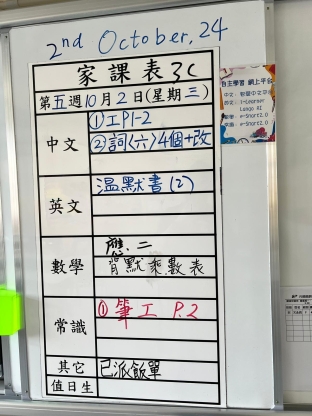 2nd October, 24
家課表 3C
第五週10月2日(星期三)
中文
①工P1-2
②詞〈六〉4個+改
英文
温默書(2)
數學
應.二
背默乘數表
常識
① 筆工 P.2
其它
已派飯單
值日生
自主學習 網上平台
中文:
英文: i-Learner
Lango AI
數學: e-Smart2.0
常識: e-Smart2.0